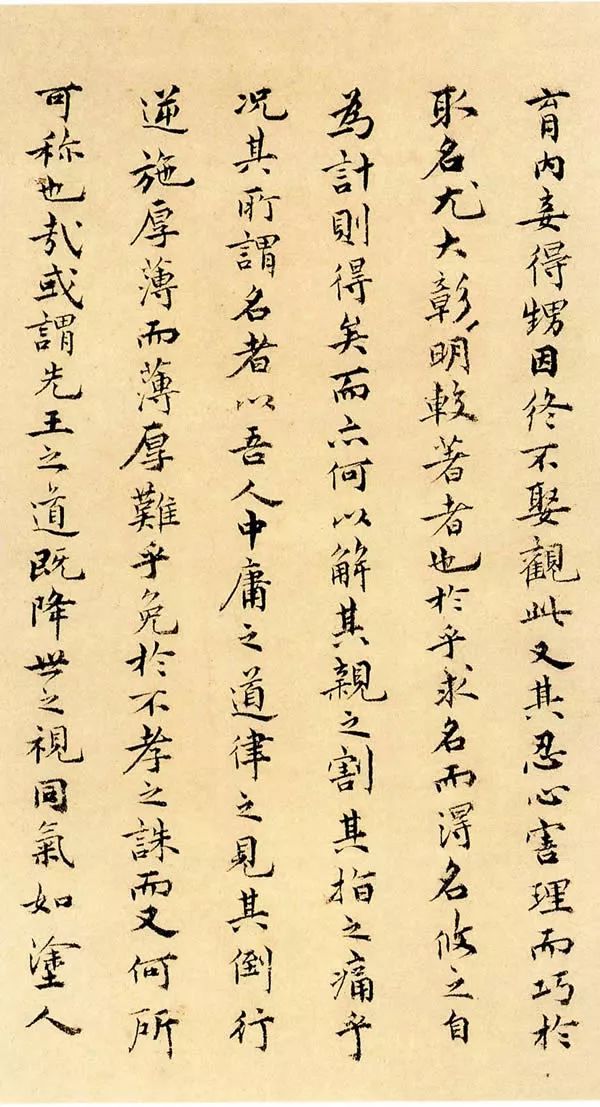 育内妾得甥因终不娶觀此又其忍心害理而巧於
取名尤大彰明較著者也於乎求名而淂名攸之自
為計則得矣而亦何以解其親之割其指之痛乎
况其所謂名者以吾人中庸之道律之見其倒行
逆施厚薄而薄厚難乎免於不孝之誅而又何所
可称也哉或謂先王之道既降世之視同氣如塗人